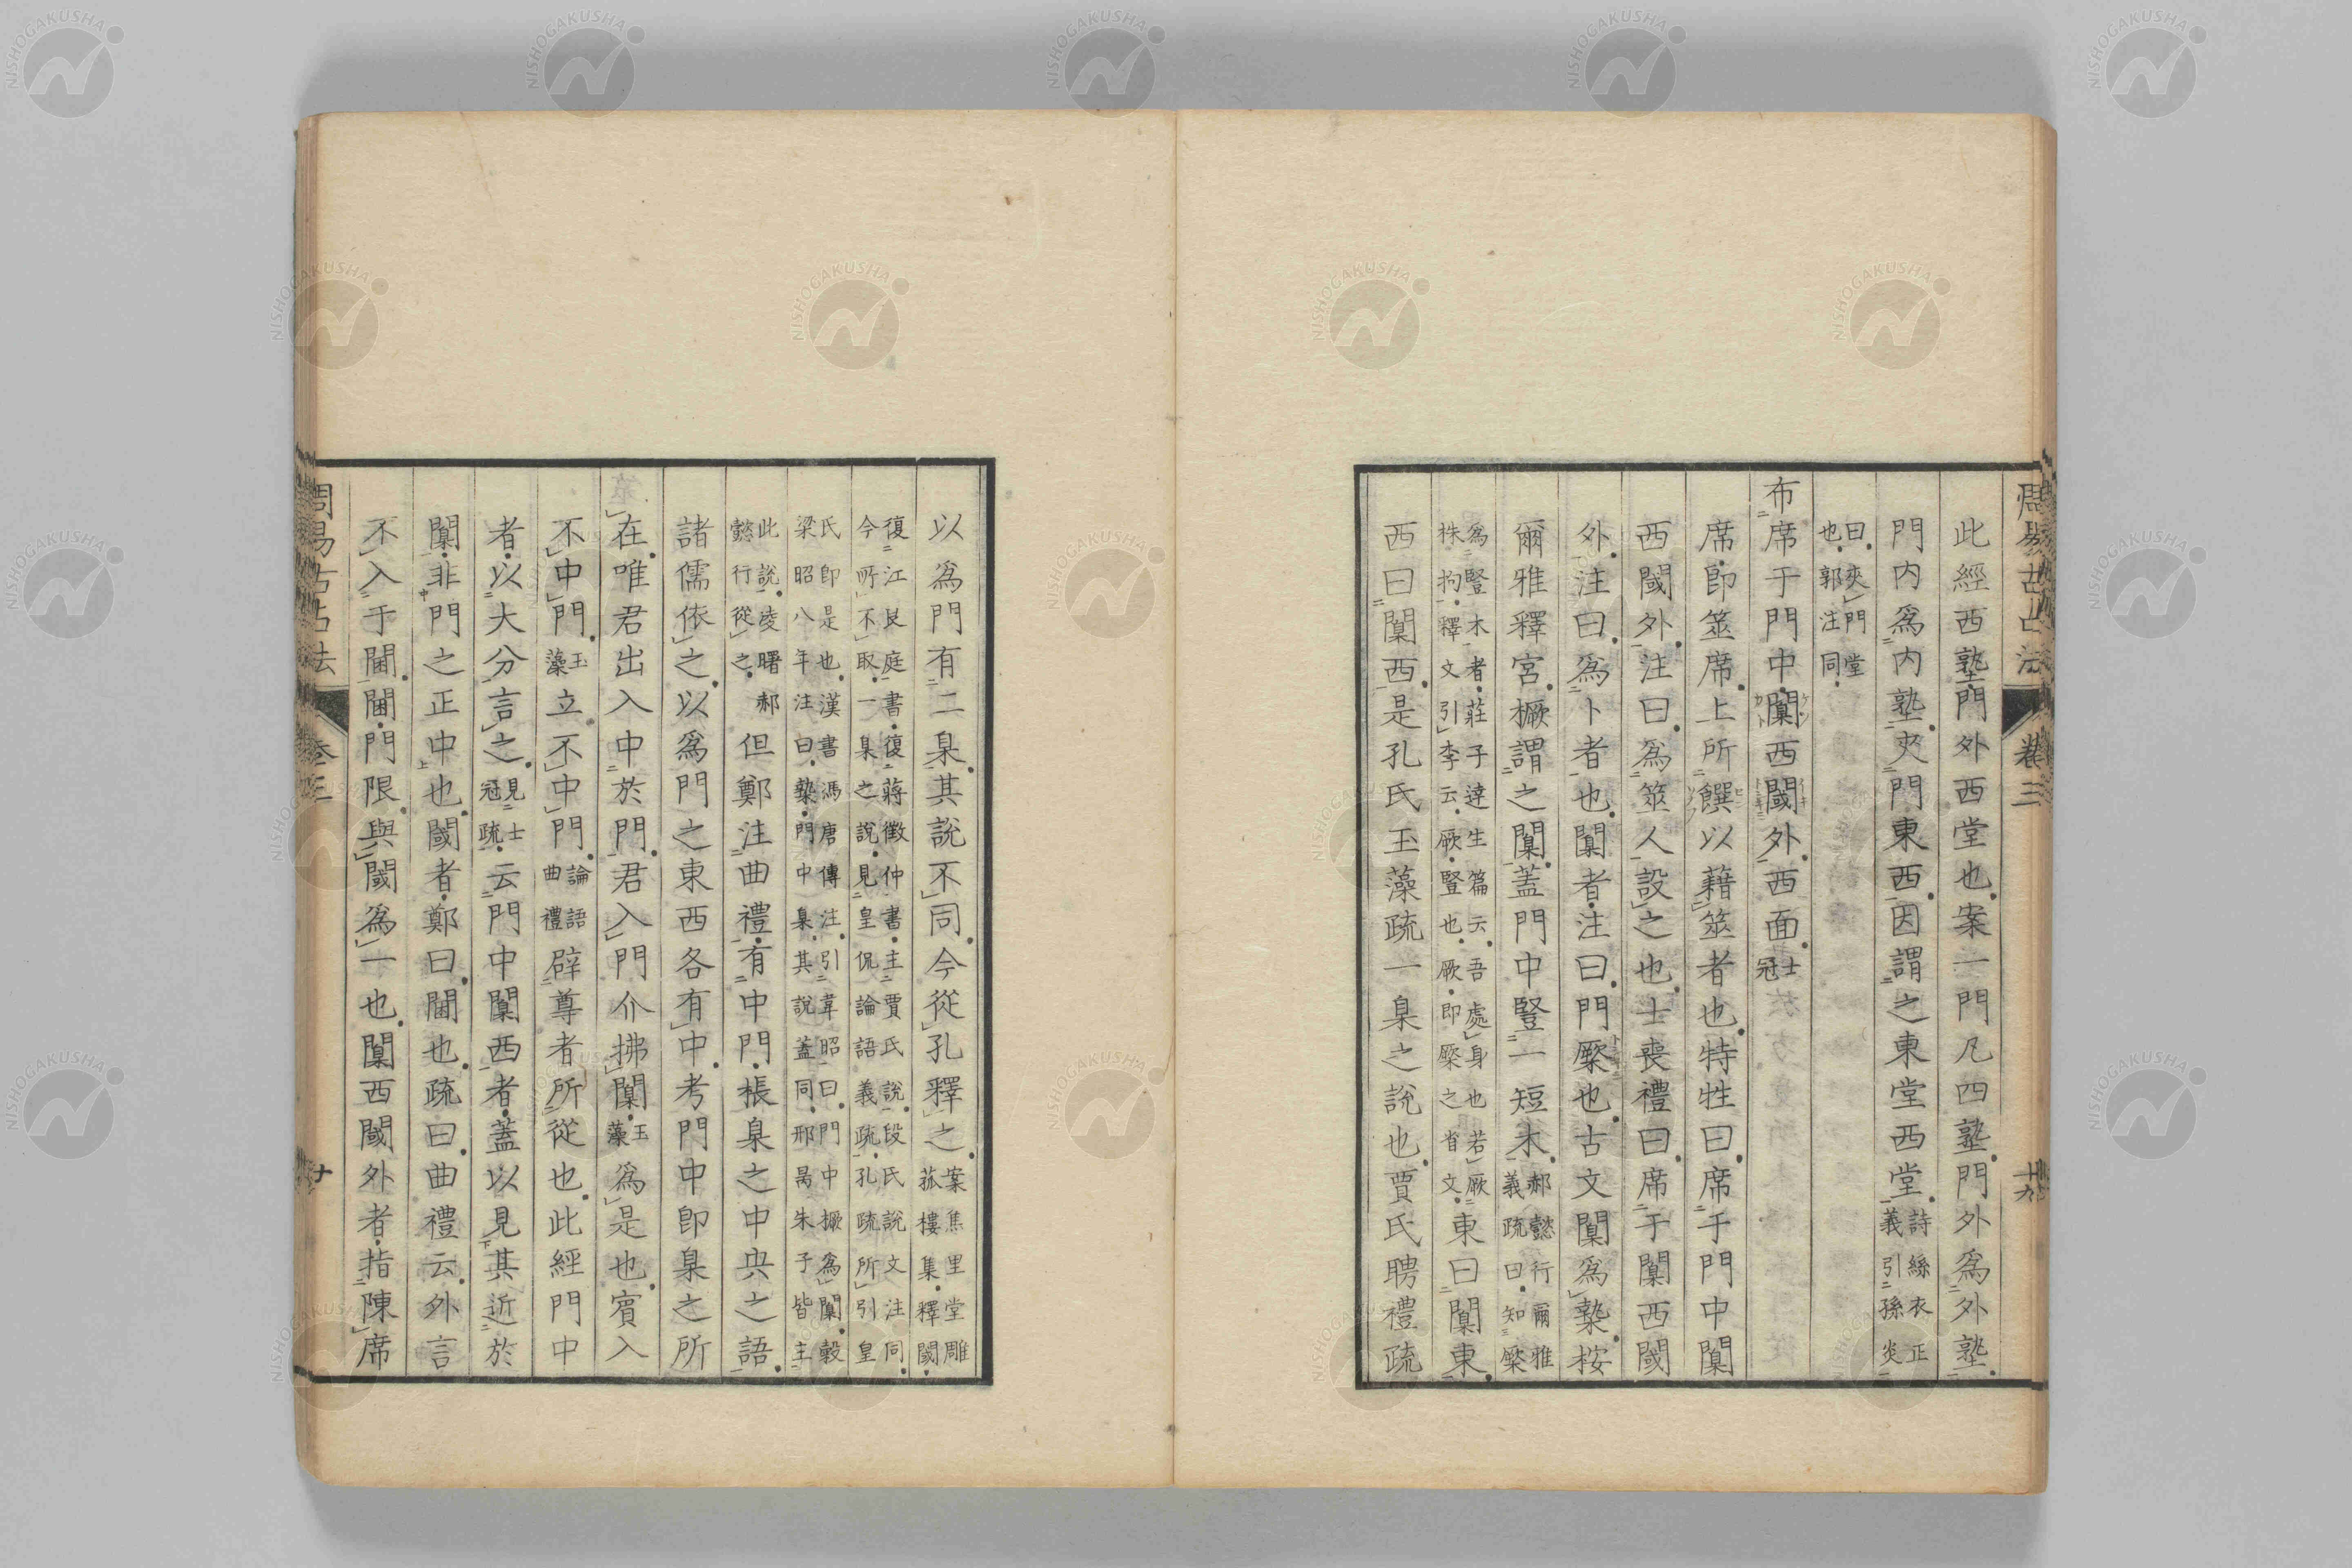 周易古占法 卷三 十九
此經西塾門外西堂也案一門凡四塾門外爲外塾
門内爲内塾夾門東西因謂之東堂西堂詩絲衣正義引孫炎
曰夾門堂也郭注同
布席于門中闑西閾外西面士冠
席即筮席上所饌以藉筮者也特牲曰席于門中闑
西閾外注曰爲筮人設之也士喪禮曰席于闑西閾
外注曰爲卜者也闑者注曰門橜也古文闑爲槷按
爾雅釋宮橛謂之闑蓋門中豎一短木郝懿行爾雅義疏曰知橜
爲豎木者莊子達生篇云吾處身也若厥株拘釋文引李云厥豎也厥即橜之省文東曰闑東
西曰闑西是孔氏玉藻疏一臬之說也賈氏聘禮疏
以爲門有二臬其說不同今從孔釋之案焦里堂雕菰樓集釋閾
復江艮庭書復蔣徵仲書主賈氏說段氏說文注同今所不取一臬之說見皇侃論語義疏孔疏所引皇
氏即是也漢書馮唐傳注引韋昭曰門中橛爲闑穀梁昭八年注曰槷門中臬其說蓋同邢昺朱子皆主
此說淩曙郝懿行從之但鄭注曲禮有中門棖臬之中央之語
諸儒依之以爲門之東西各有中考門中即臬之所
在唯君出入中於門君入門介拂闑玉藻爲是也賓入
不中門玉藻立不中門論語曲禮辟尊者所從也此經門中
者以大分言之見士冠疏云門中闑西者蓋以見其近於
闑非門之正中也閾者鄭曰閫也疏曰曲禮云外言
不入于閫閫門限與閾爲一也闑西閾外者指陳席
周易古占法 卷三